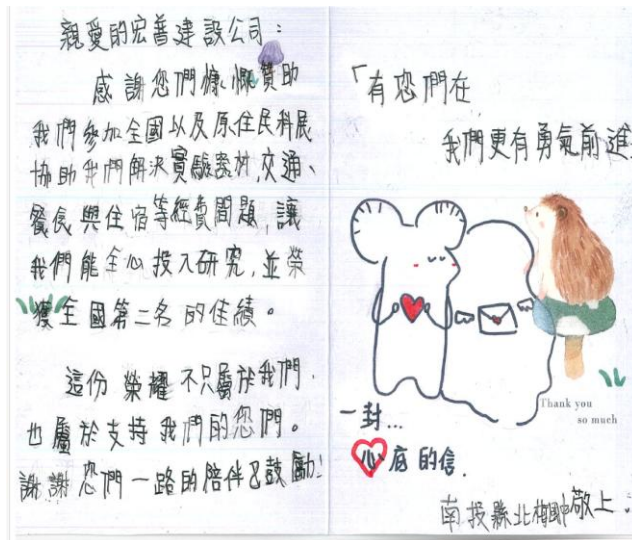 親愛的宏善建設公司：
感謝您們慷慨贊助
我們參加全國以及原住民科展
協助我們解決實驗器材、交通、
餐食與住宿等經費問題，讓
我們能全心投入研究，並榮
獲全國第二名的佳績。
這份榮耀不只屬於我們，
也屬於支持我們的您們。
謝謝您們一路的陪伴及鼓勵！
「有您們在
我們更有勇氣前進
Thank you
so much
一封...
心底的信.
南投縣北梅國中敬上.